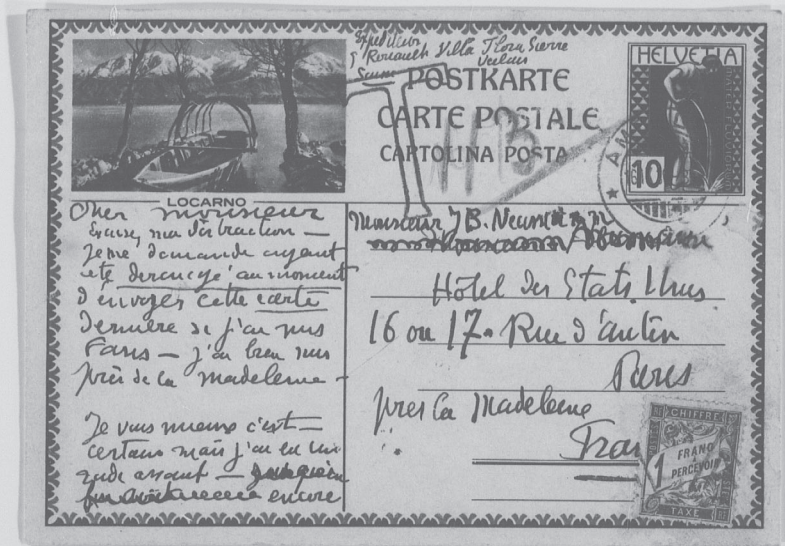 Expéditeur
G Rouault Villa Flora Sierre
Valais
Suisse
POSTKARTE
CARTE POSTALE
CARTOLINA POSTA
T
HELVETIA
10
AM
LOCARNO
Cher monsieur
Excusez ma distraction —
je me demande ayant
été derangé au moment
d'envoyer cette carte
dernière si j'ai mis
Paris — j'ai bien mis
près de la madeleine —
Je vais mieux c'est —
certain mais j'ai eu un
rude assaut —
encore
Monsieur J B. Neumann
Hôtel des Etats Unis
16 ou 17 Rue d'antin
Paris
près la Madeleine
Fran
CHIFFRE
1 FRANC
A PERCEVOIR
TAXE